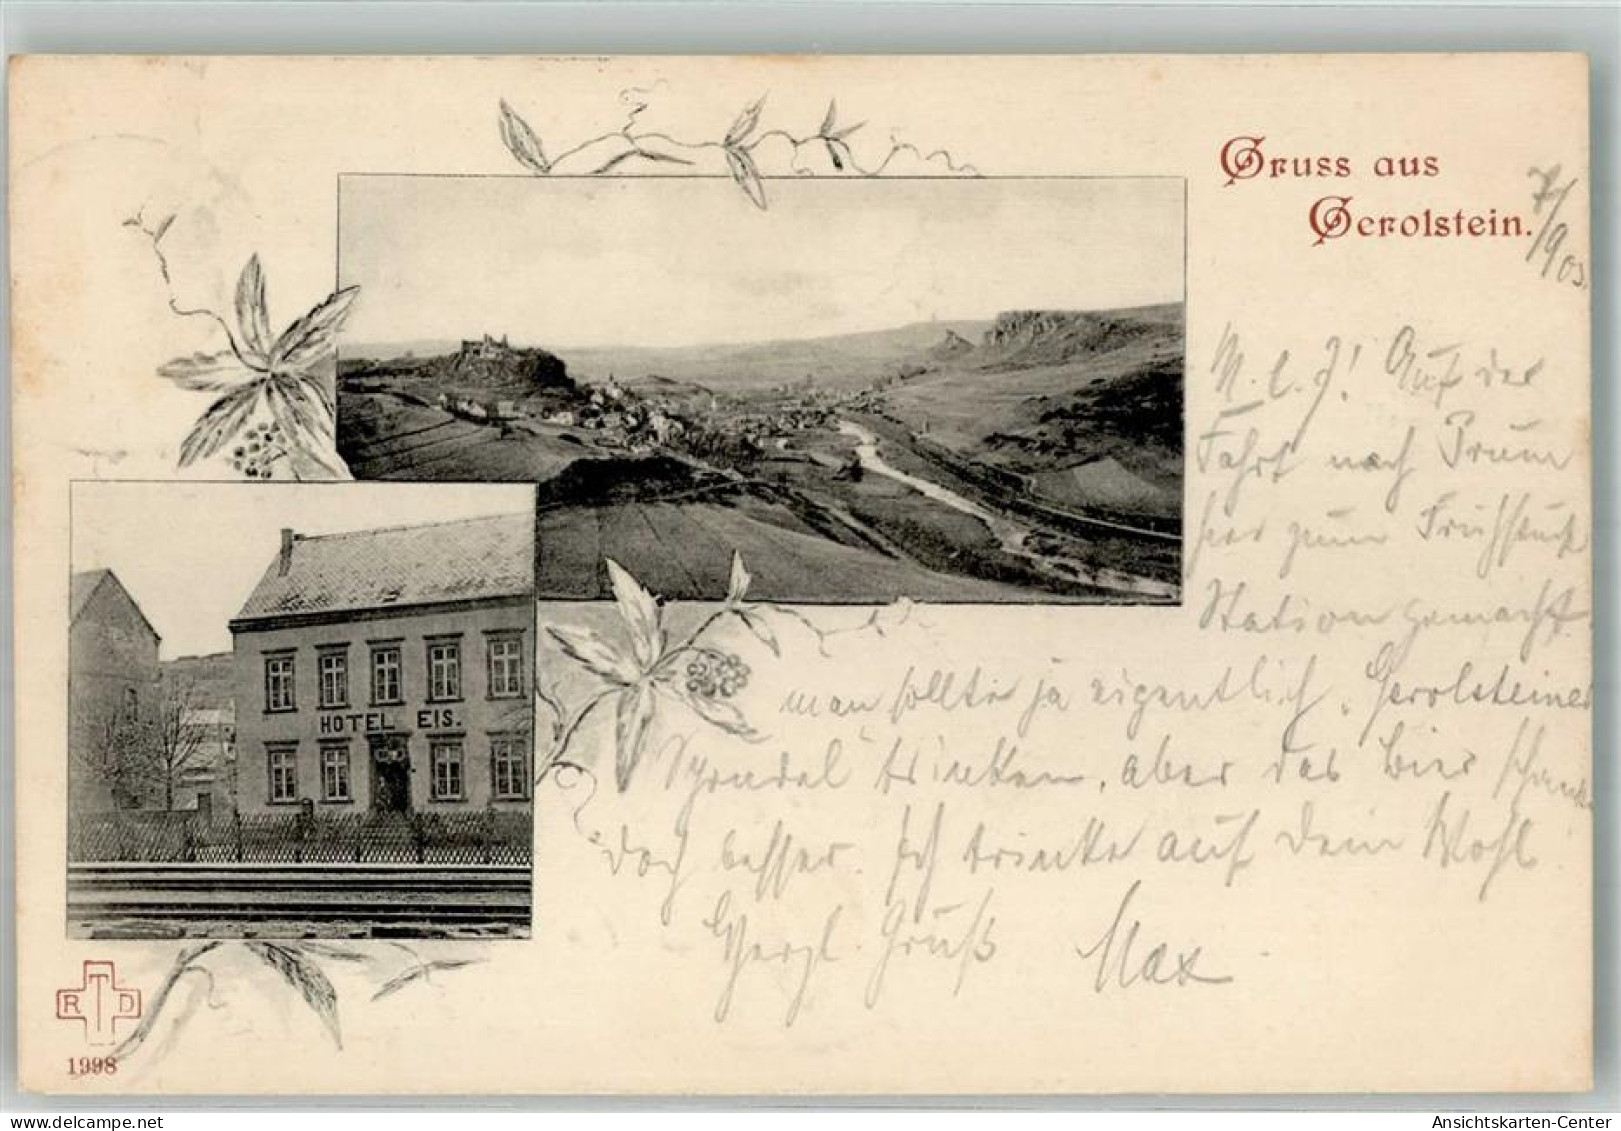 Gruss aus
Gerolstein.
7/9 03.
M. l. J! Auf der
Fahrt nach Prüm
hier zum Frühstück
Station gemacht.
man sollte ja eigentlich Gerolsteiner
Sprudel trinken, aber das Bier schmeckt
doch besser. Ich trinke auf Dein Wohl.
Herzl. Gruß Max
HOTEL EIS.
R T D
1998
delcampe.net
Ansichtskarten-Center